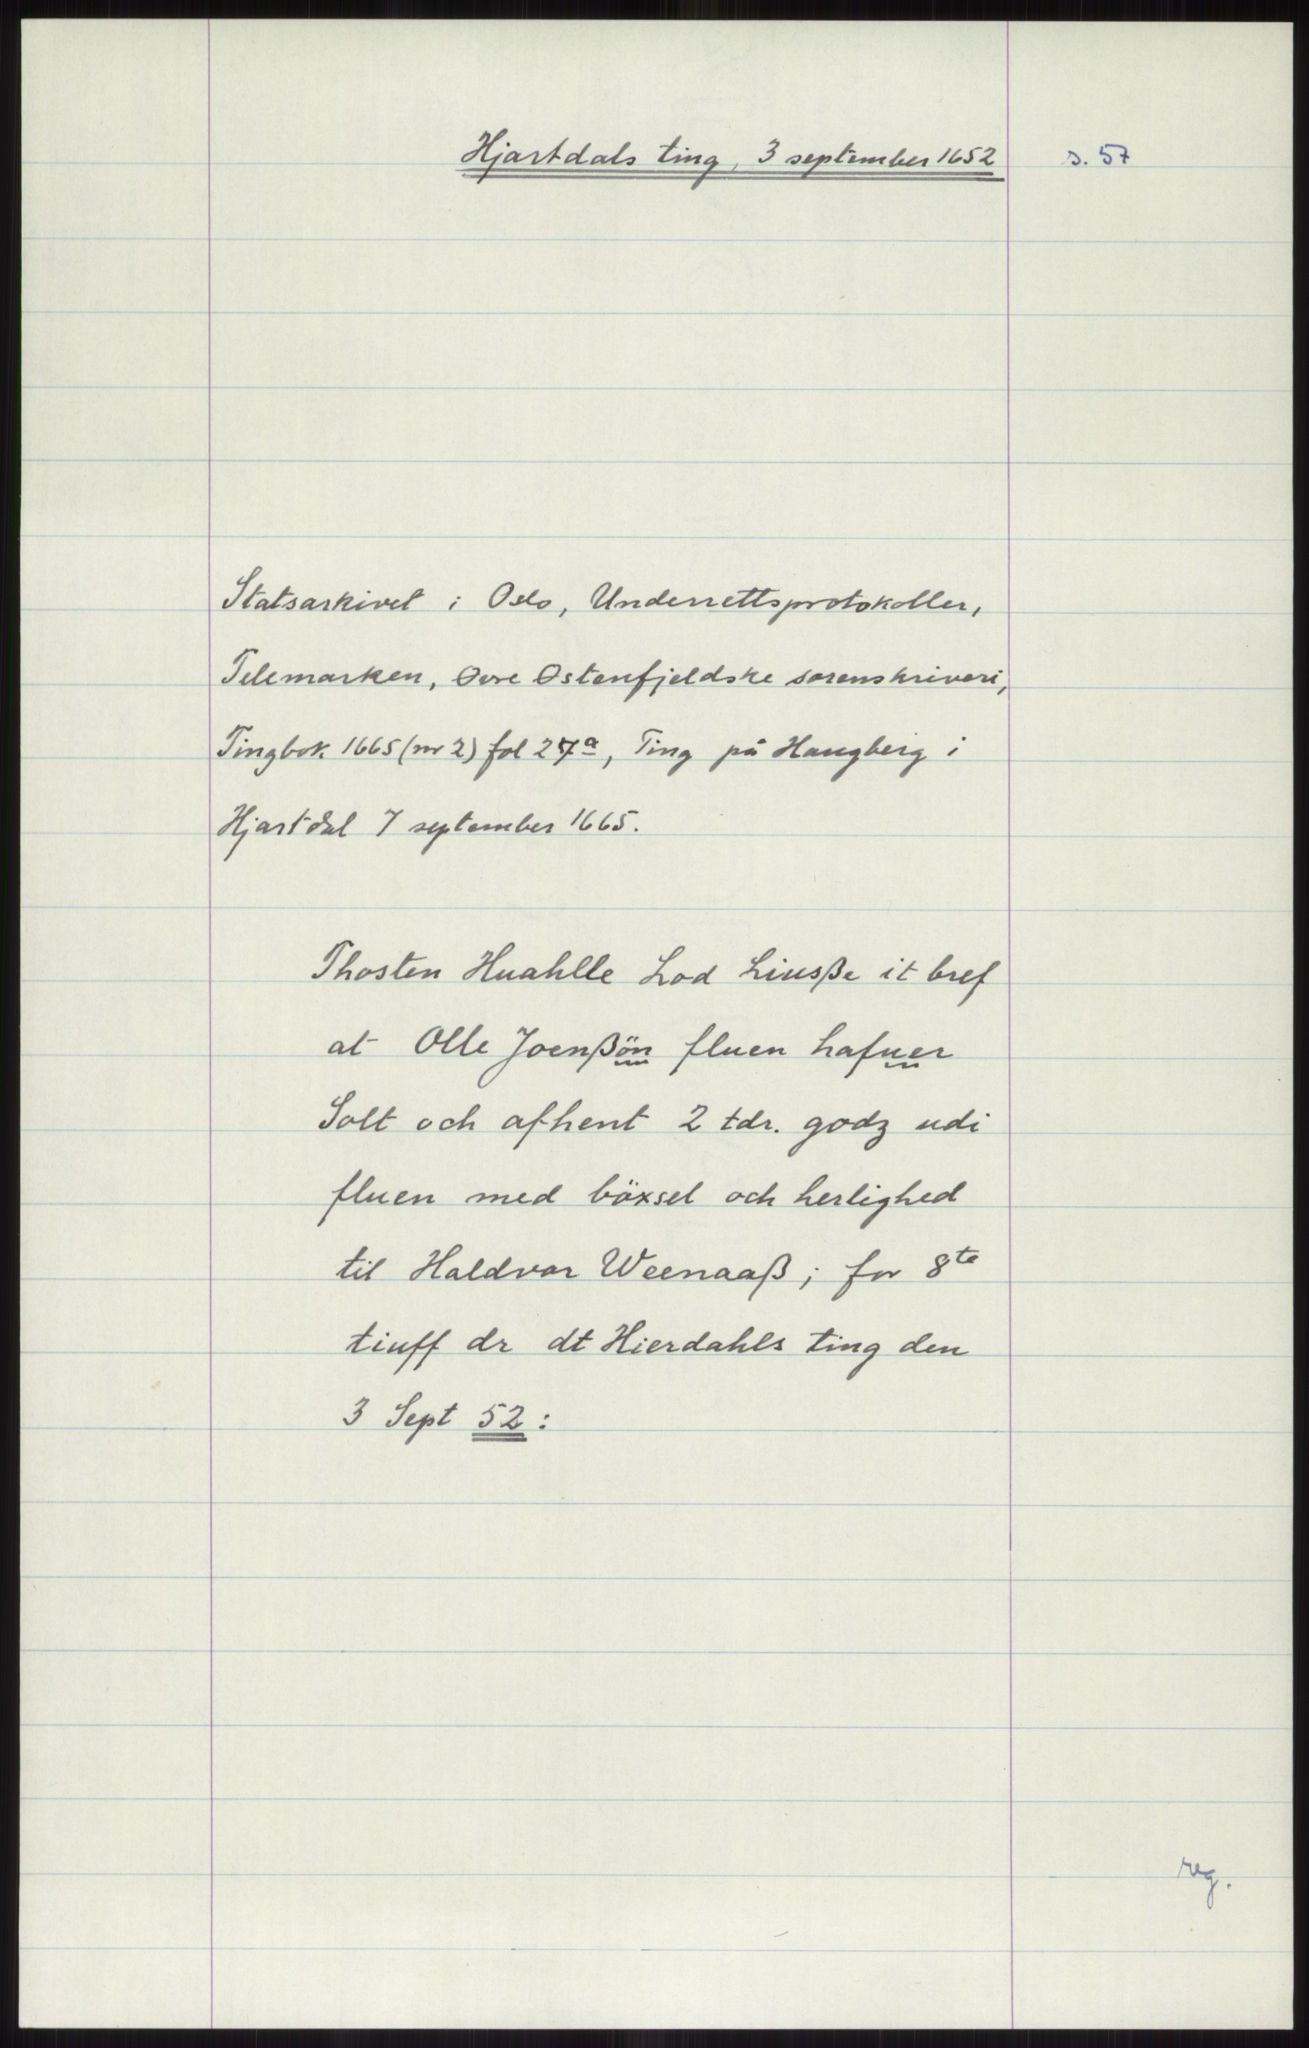 Hjartdals ting, 3 september 1652 s. 57
Statsarkivet i Oslo, Underrettsprotokoller,
Telemarken, Øvre Østenfjeldske sorenskriveri,
Tingbok 1665 (nr 2) fol 27a, Ting på Haugberg i
Hjartdal 7 september 1665.
Thosten Huahlle Lod Liusße it bref
at Olle Joenßön fluen hafuer
Solt och afhent 2 tdr. godz udi
fluen med böxsel och herlighed
til Haldvor Weenaaß; for 8te
tiuff dr dt Hierdahls ting den
3 Sept 52:
reg.